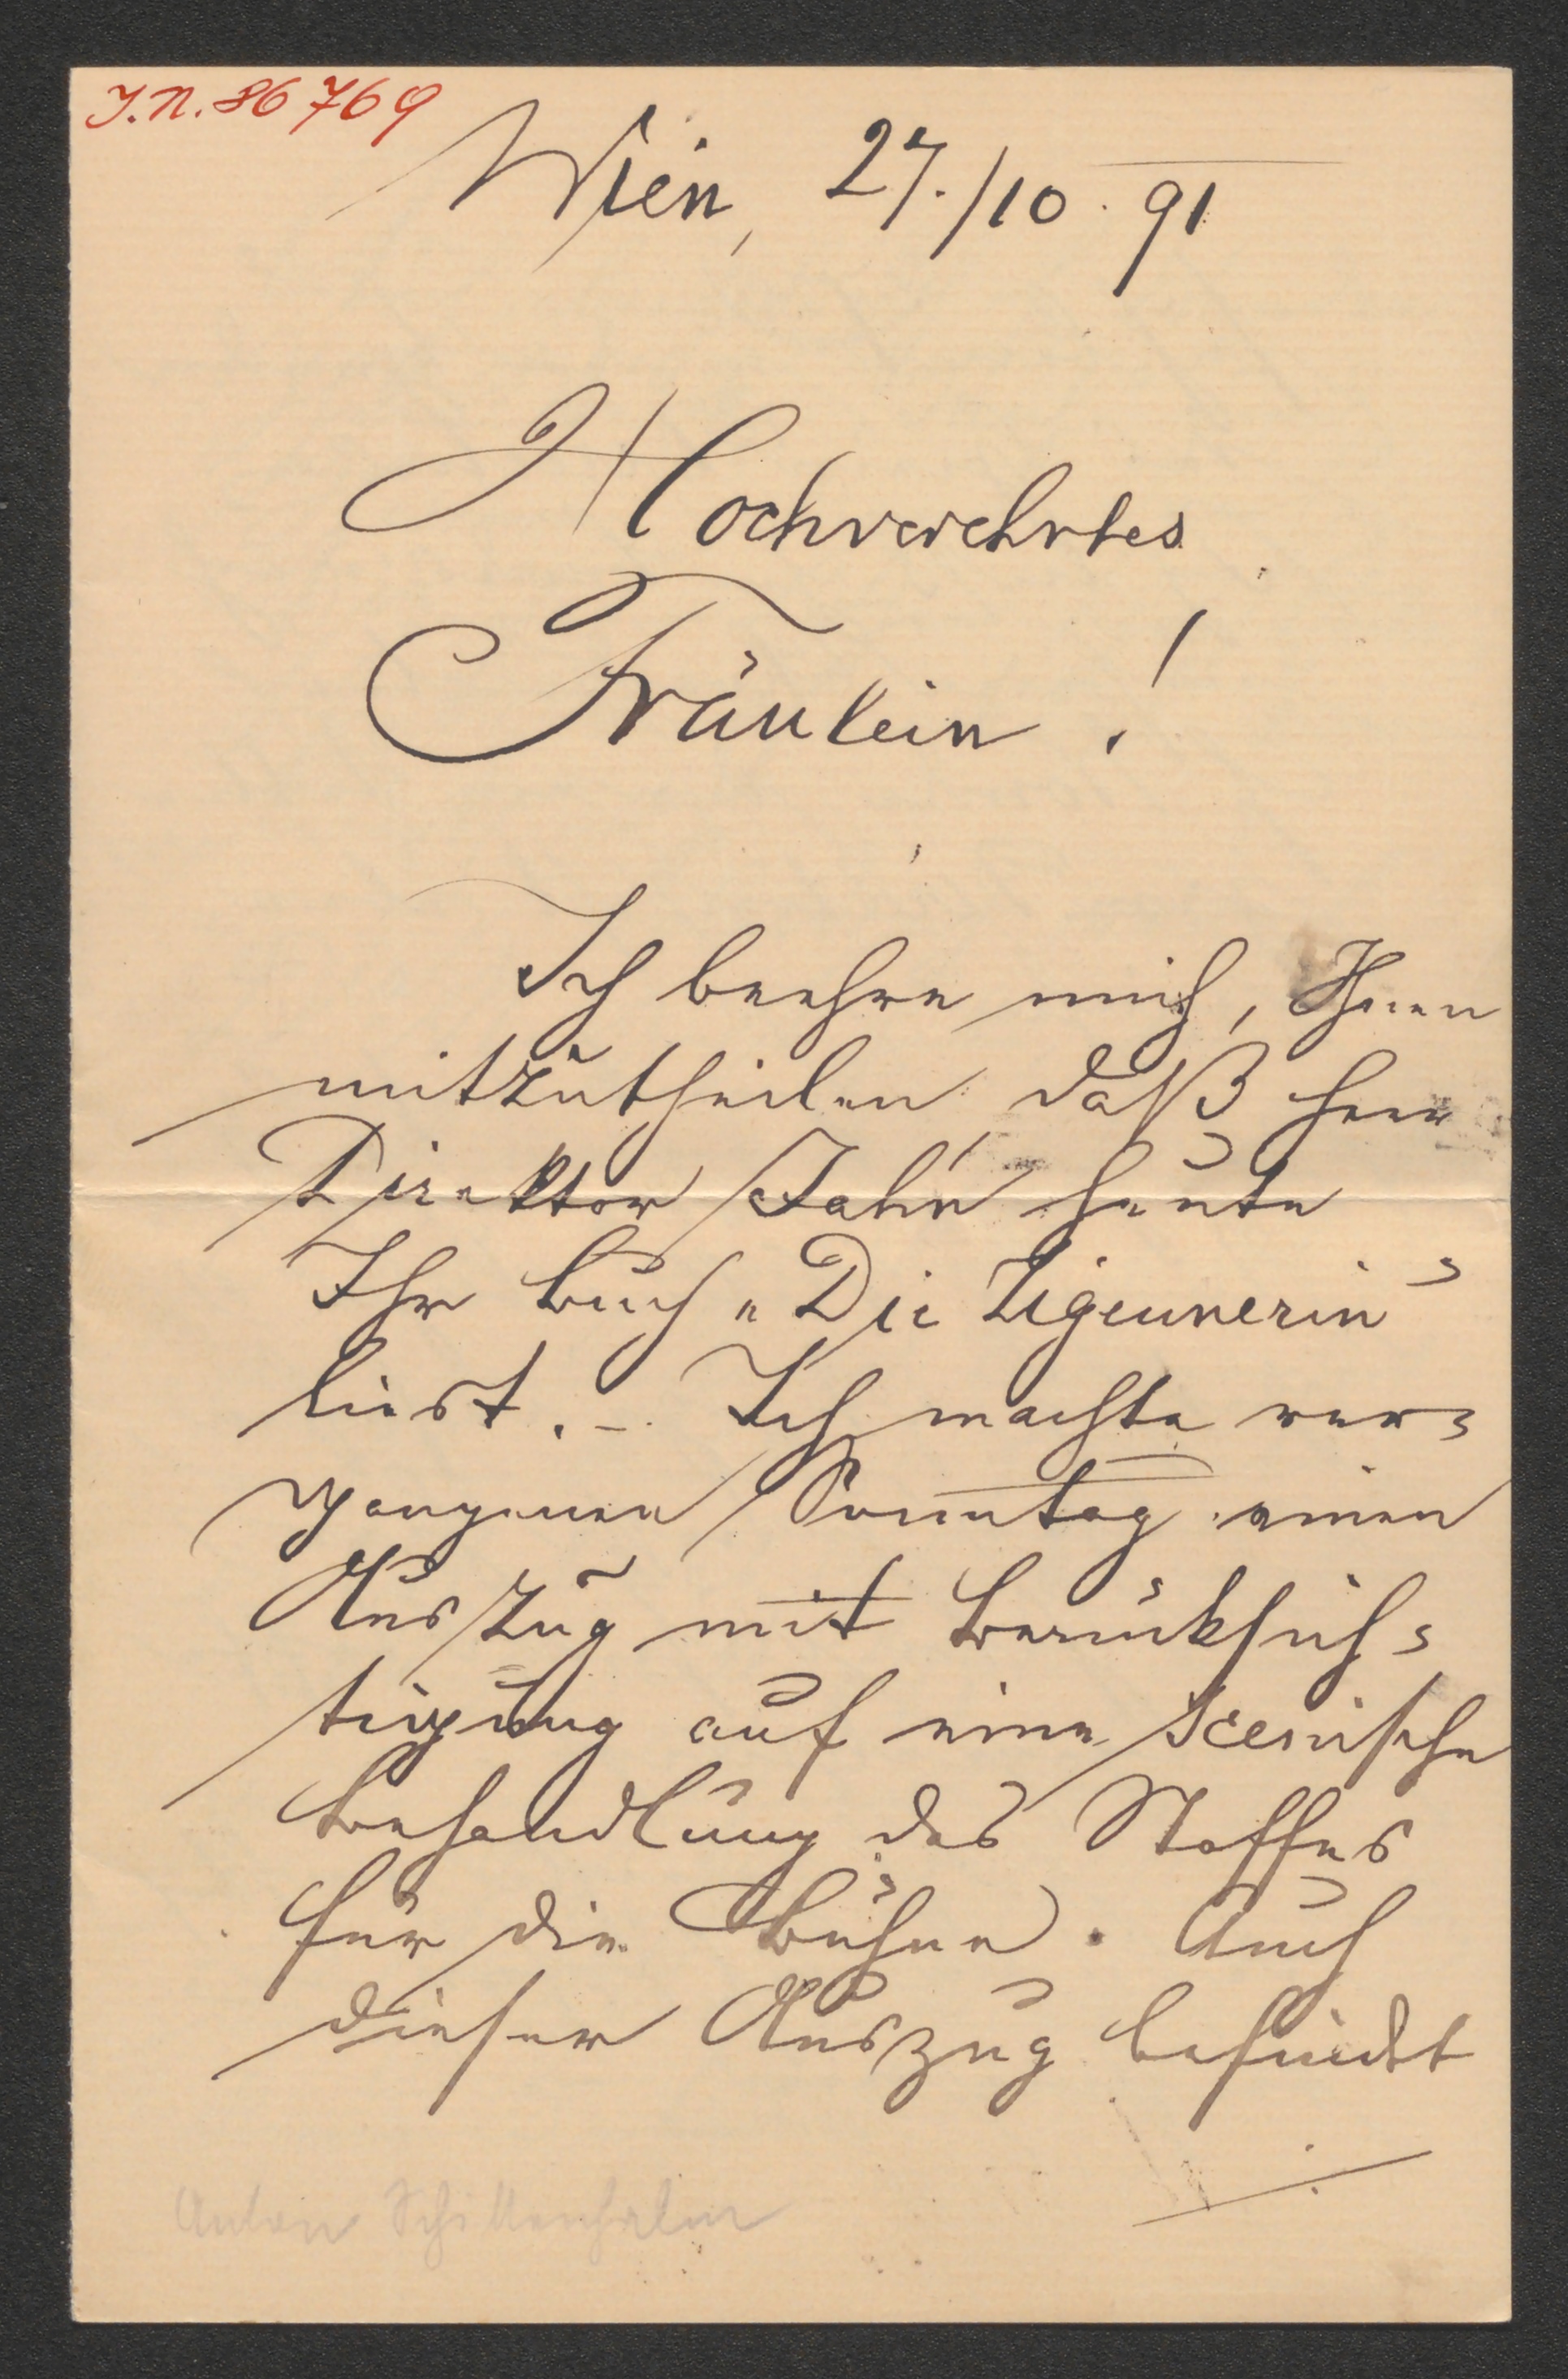 J.N. 86769
Wien, 27./10. 91
Hochverehrtes
Fräulein !
Ich beehre mich, Ihnen
mitzutheilen daß Herr
Direktor Jahn heute
Ihr Buch „Die Zigeunerin“
liest. – Ich machte ver=
gangenen Sonntag einen
Auszug mit Berücksich=
tigung auf eine scenische
Behandlung des Stoffes
für die Bühne. Auch
dieser Auszug befindet
Anton Schittenhelm